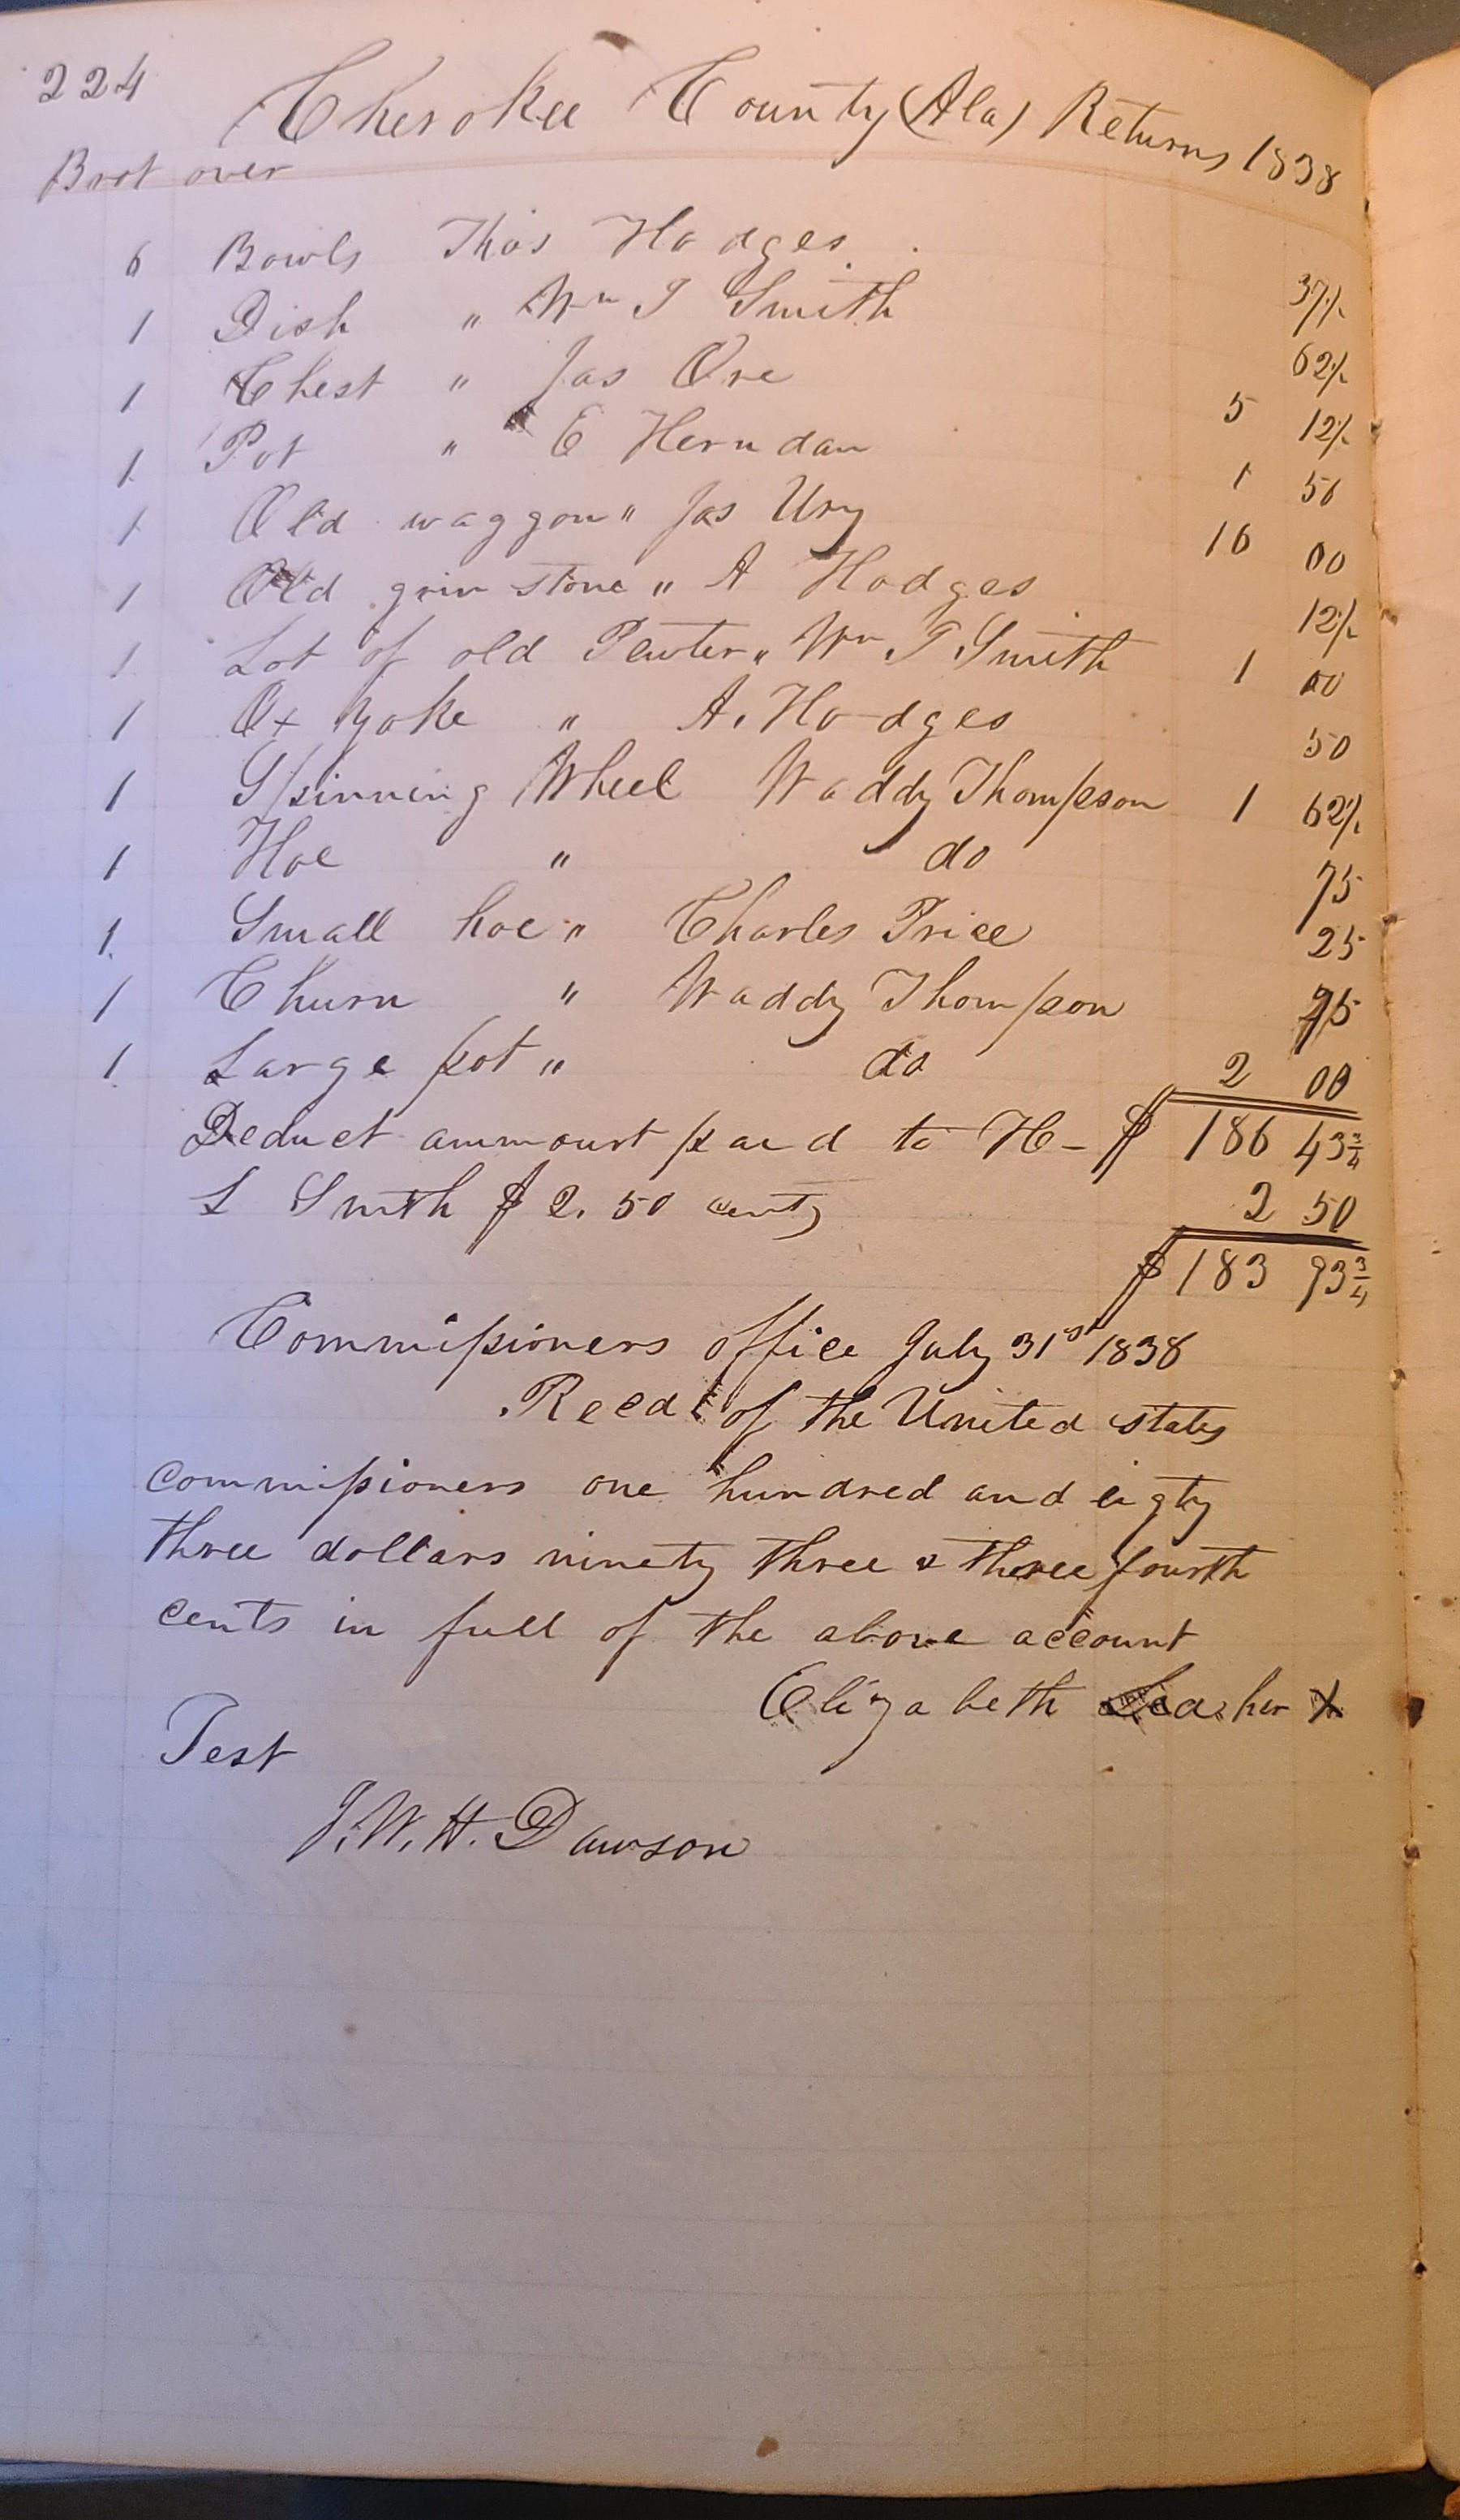 224 Cherokee County (Ala) Returns 1838
Brot over
6 Bowls Thos Hodges 37½
1 Dish " Wm I Smith 62½
1 Chest " Jas Ore 5 12½
1 Pot " E Herndan 1 50
1 Old waggon " Jas Ury 10 00
1 Old grin stone " A Hodges 12½
1 Lot of old Pewter " Wm I Smith 1 00
1 Ox Yoke " A. Hodges 50
1 Spinning Wheel Waddy Thompson 1 62½
1 Hoe " do 75
1 Small hoe " Charles Price 25
1 Churn " Waddy Thompson 75
1 Large pot " do 2 00
Deduct ammount paid to H- $ 186 43¾
L Smith $ 2.50 cents 2 50
$ 183 93¾
Commissioners office July 31st 1838
Recd of the United states
commissioners one hundred and eigty
three dollars ninety three & three fourth
cents in full of the above account
Elizabeth her X
Test
J. W. H. Dawson